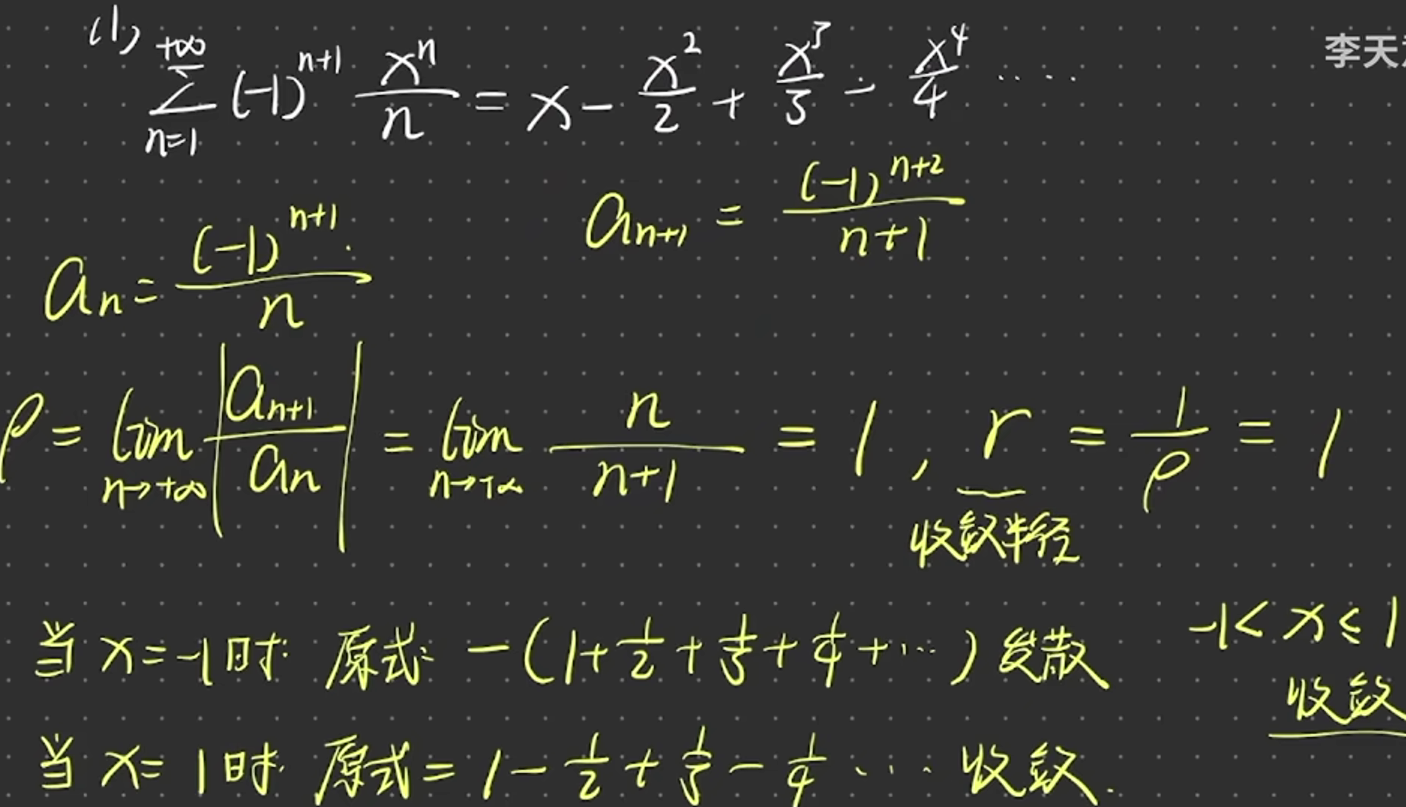 李天
(1) \sum_{n=1}^{+\infty} (-1)^{n+1} \frac{x^n}{n} = x - \frac{x^2}{2} + \frac{x^3}{3} - \frac{x^4}{4} ·····
a_{n+1} = \frac{(-1)^{n+2}}{n+1}
a_n = \frac{(-1)^{n+1}}{n}
ρ = \lim_{n→+∞} \left|\frac{a_{n+1}}{a_n}\right| = \lim_{n→+∞} \frac{n}{n+1} = 1, r = \frac{1}{ρ} = 1
收敛半径
当 x=-1时 原式: -(1+\frac{1}{2}+\frac{1}{3}+\frac{1}{4}+···) 发散
-1< x ≤ 1
收敛
当 x= 1时 原式= 1-\frac{1}{2}+\frac{1}{3}-\frac{1}{4} ···· 收敛.